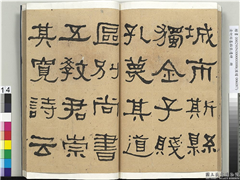 城市斯縣
獨全子賤
孔蔑其道
區別尚書
五教君崇
其寬詩云
14